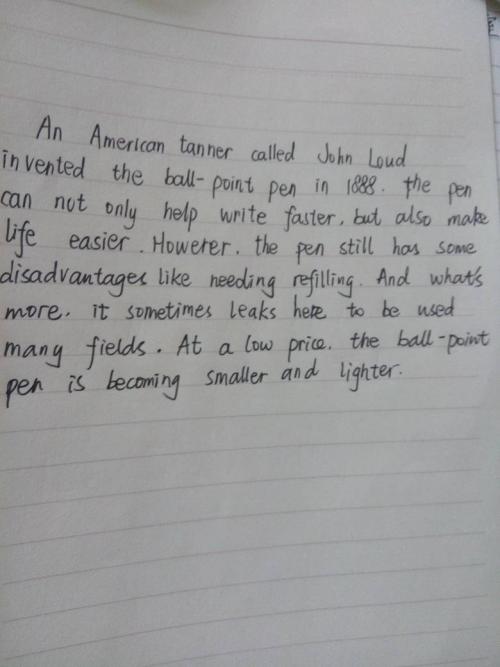 An American tanner called John Loud
invented the ball-point pen in 1888. the pen
can not only help write faster, but also make
life easier. However, the pen still has some
disadvantages like needing refilling. And what's
more, it sometimes leaks here to be used
many fields. At a low price, the ball-point
pen is becoming smaller and lighter.